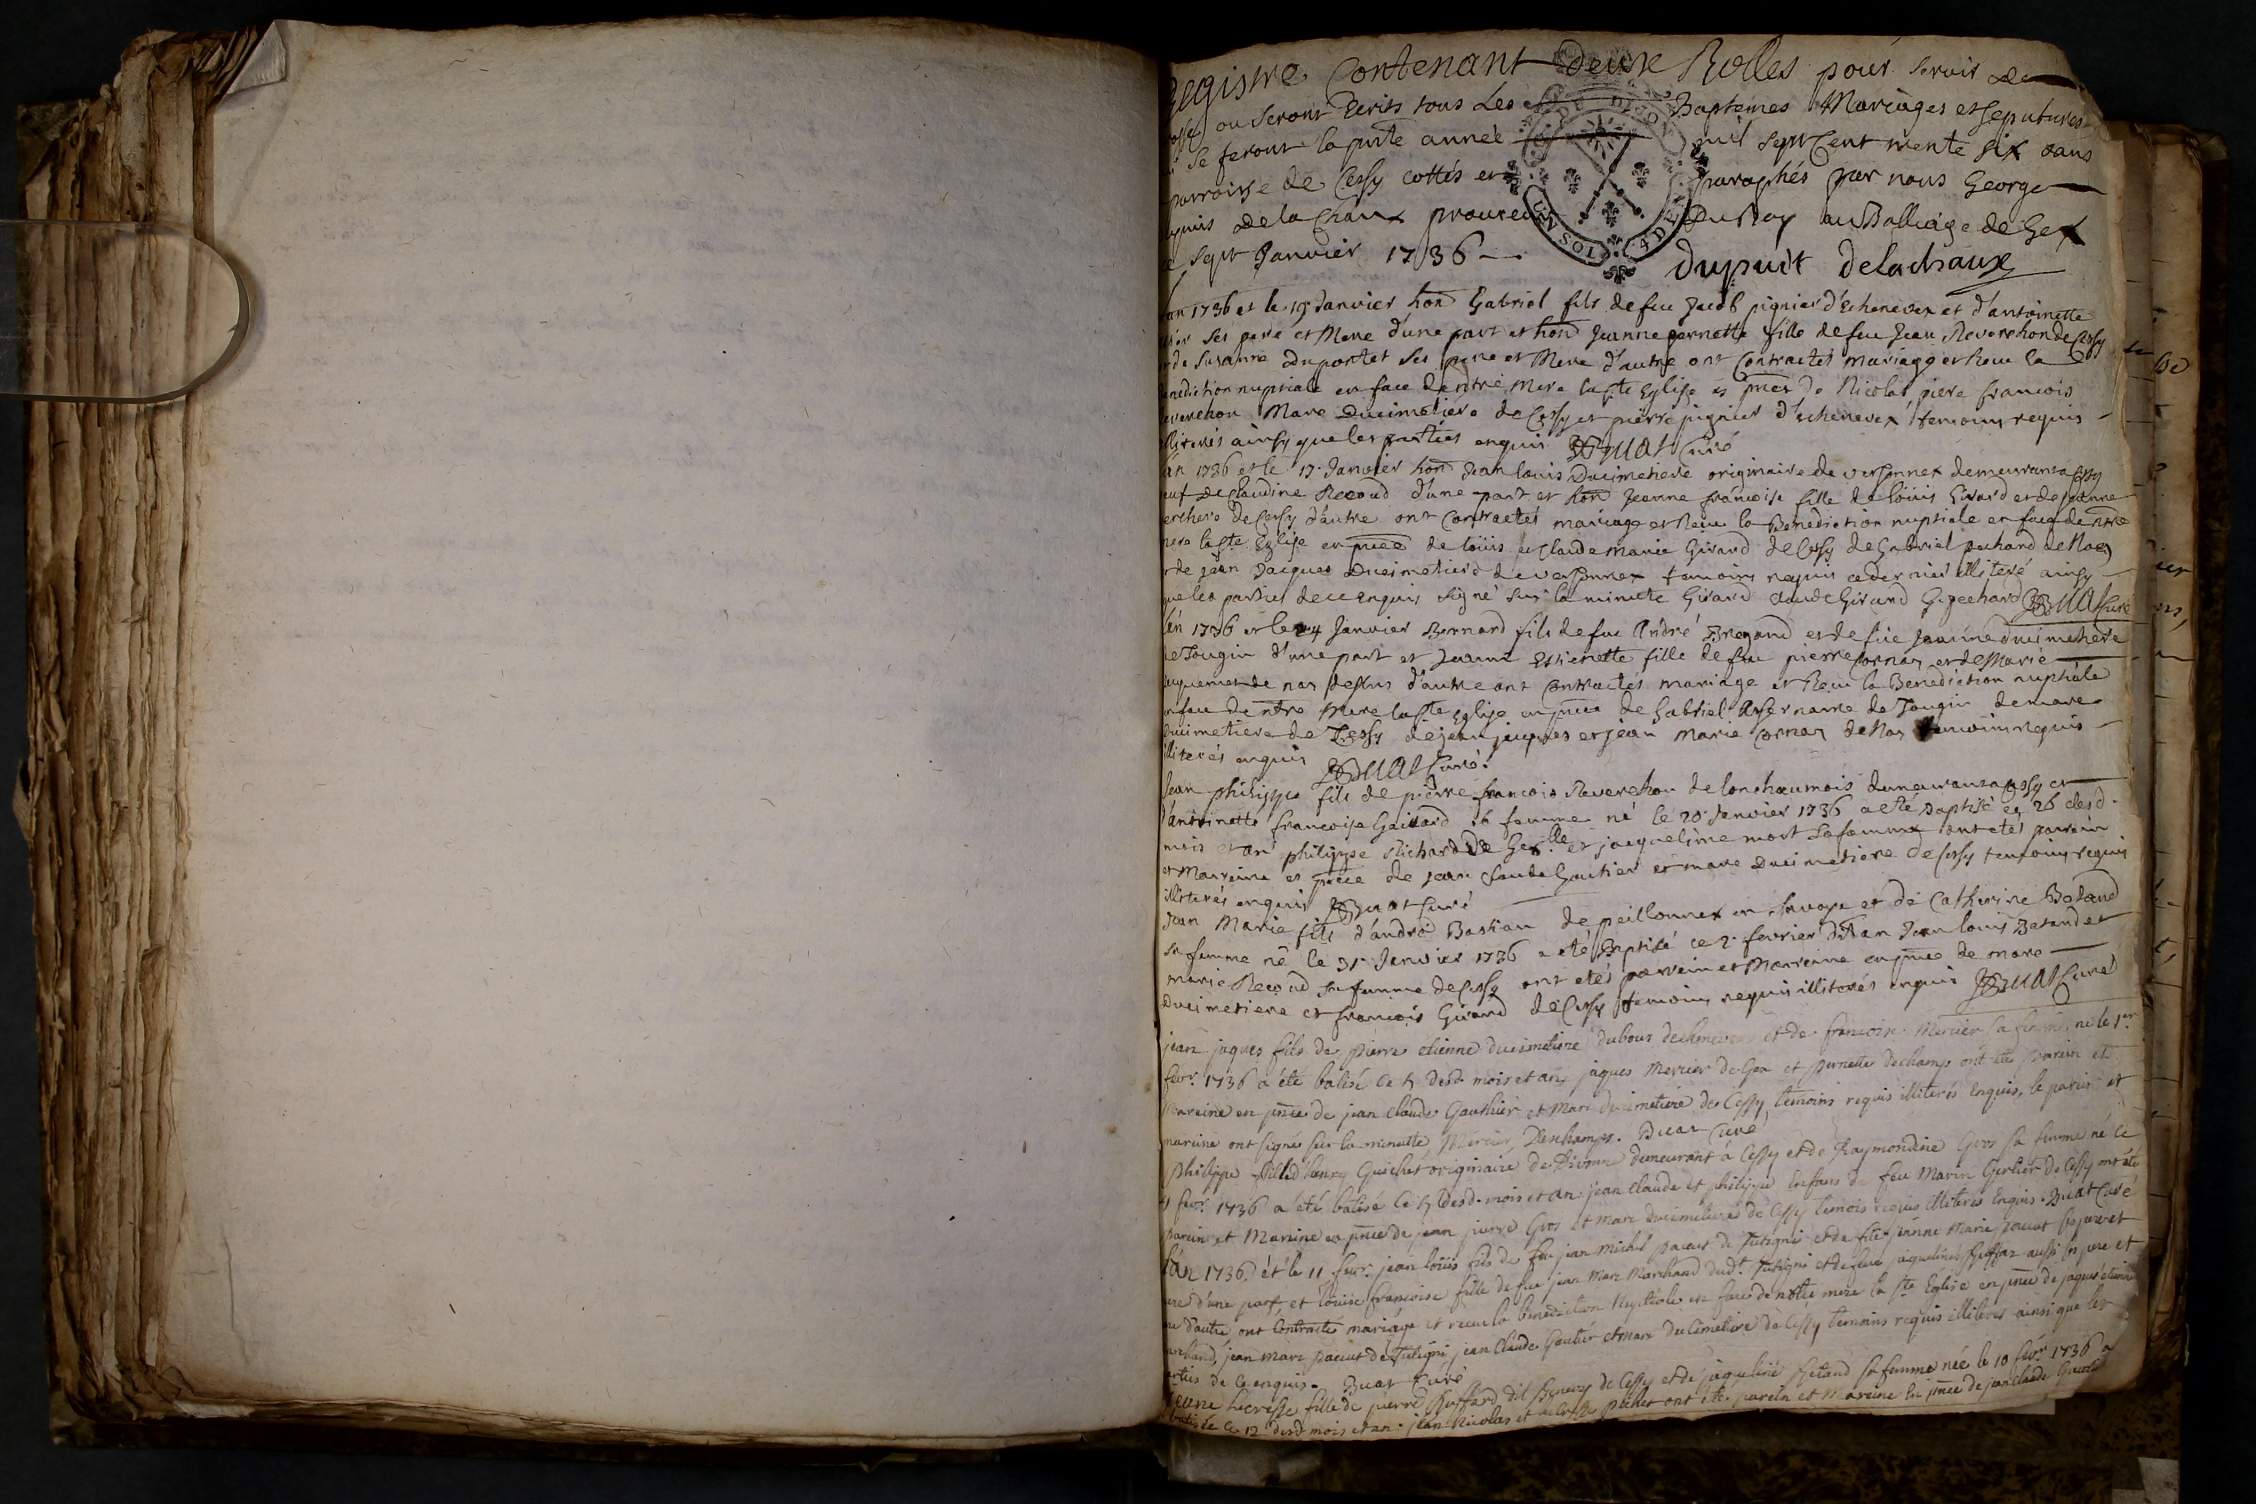 Registre Contenant deux Rolles pour servir de
ou seront Ecrits tous Les Baptemes Mariages et sepultures
se feront la pnte année mil sept Cent trente six dans
parroisse de Cessy cottés et paraphés par nous George
Dupuis de la Chaux procureur Du Roy au Balliage de Gex
ce sept Janvier 1736
DE DIJON
UN SOL 4 DEN
dupuit delachaux
L'an 1736 et le 19 Janvier hon Gabriel fils de feu Jacob pignier d'Echenevex et d'antoinette
ses pere et Mere d'une part et hon Jeanne pernette fille de feu Jean Reverchon de Cessy
et de Susanne duportet ses pere et Mere d'autre ont Contractés mariage et Receu la
benediction nuptiale en face de ntre Mere la ste Eglise es pnces de Nicolas piere francois
Reverchon Marc Ducimetiere de Cessy et pierre pignier d'echenevex temoins requis
illiterés ainsy que les parties enquis Buat Curé
L'an 1736 et le 17 Janvier hon Jean louis Ducimetiere originaire de versonnex demeurant a Cessy
veuf de Claudine Recoud d'une part et hon Jeanne francoise fille de loüis Girard et de jeanne
de Cessy d'autre ont Contractés mariage et Receu la Benediction nuptiale en face de ntre
mere la ste Eglise en pnce de loüis et Claude marie Girard de Cessy de Gabriel pechard de Nas
et de jean Jacques Ducimetiere de versonnex temoins requis ce dernier illiteré ainsy
que les parties de ce enquis signé sur la minute Girard Claude Girard G. pechard Buat Curé
L'an 1736 et le 24 Janvier Bernard fils de feu André Bregand et de fue Jeanne ducimetiere
de Tougin d'une part et Jeanne Estienette fille de feu pierre Cornas et de Marie
de nas d'autre ont Contractés mariage et Receu la Benediction nuptiale
en face de ntre Mere la ste Eglise en pnce de Gabriel de Tougin de marc
Ducimetiere de Cessy de jean jacques et jean Marie Cornas de Nas temoins requis
illiterés enquis Buat Curé.
Jean philippe fils de pierre francois Reverchon de lonchaumois demeurant a Cessy et
d'antoinette francoise Gaillard sa femme né le 20 Janvier 1736 a eté Baptisé ce 26 desd.
mois et an philippe Richard de Gex et jacqueline mort sa femme ont etés parrein
et Marreine es pnce de jean Claude Gautier et marc Ducimetiere de Cessy temoins requis
illiterés enquis Buat Curé
Jean Marie fils d'andré Bastian de peillonnex en Savoye et de Catherine Betand
sa femme né le 31 Janvier 1736 a eté Baptisé ce 2 fevrier dt an Jean louis Betand et
marie Recoud sa femme de Cessy ont etés parrein et Marrenne en pnce de marc
Ducimetiere et francois Girard de Cessy temoins requis illiterés enquis Buat Curé
jean jaques fils de pierre etienne ducimetiere et de francoise Mercier sa femme, né le 1er
fevr. 1736 a été batisé ce 5 desd. mois et an, jaques Mercier de Gex et pernette dechamps ont été parein et
mareine en pnce de jean claude Gauthier et Marc ducimetiere de Cessy temoins requis illiterés enquis, le parein et
mareine ont signés sur la minutte Mercier, Deschamps. Buat Curé
Philippe fils d'henry Guichet originaire de Divonne demeurant à Cessy et de Raymondine Gros sa femme né le
fevr. 1736 a été batisé ce 5 desd. mois et an. jean claude et philippe enfans de feu Marin Gerlier de Cessy ont été
parein et Mareine en pnce de jean pierre Gros et marc ducimetiere de Cessy temois requis illiterés enquis. Buat Curé
L'an 1736. et le 11 fevr. jean loüis fils de feu jean michel pacut de Tutigni et de fue jeanne Marie ses pere et
mere d'une part, et loüise francoise fille de feu jean Marc Marchand dud. Tutigni et de fue jaqueline aussi ses pere et
mere d'autre ont Contractés mariage et receu la benediction Nuptiale en face de notre mere la ste Eglise en pnce de jaques etienne
marchand, jean marc pacut de Tutigni, jean Claude Gautier et marc ducimetiere de Cessy temoins requis illiterés ainsi que les
parties de ce enquis. Buat Curé
fille de pierre Buffard dit de Cessy et de jaqueline Betand sa femme née le 10 fevr 1736 a
ce 12 desd mois et an. jean Nicolas et ont été parein et Mareine en pnce de jean claude Gautier